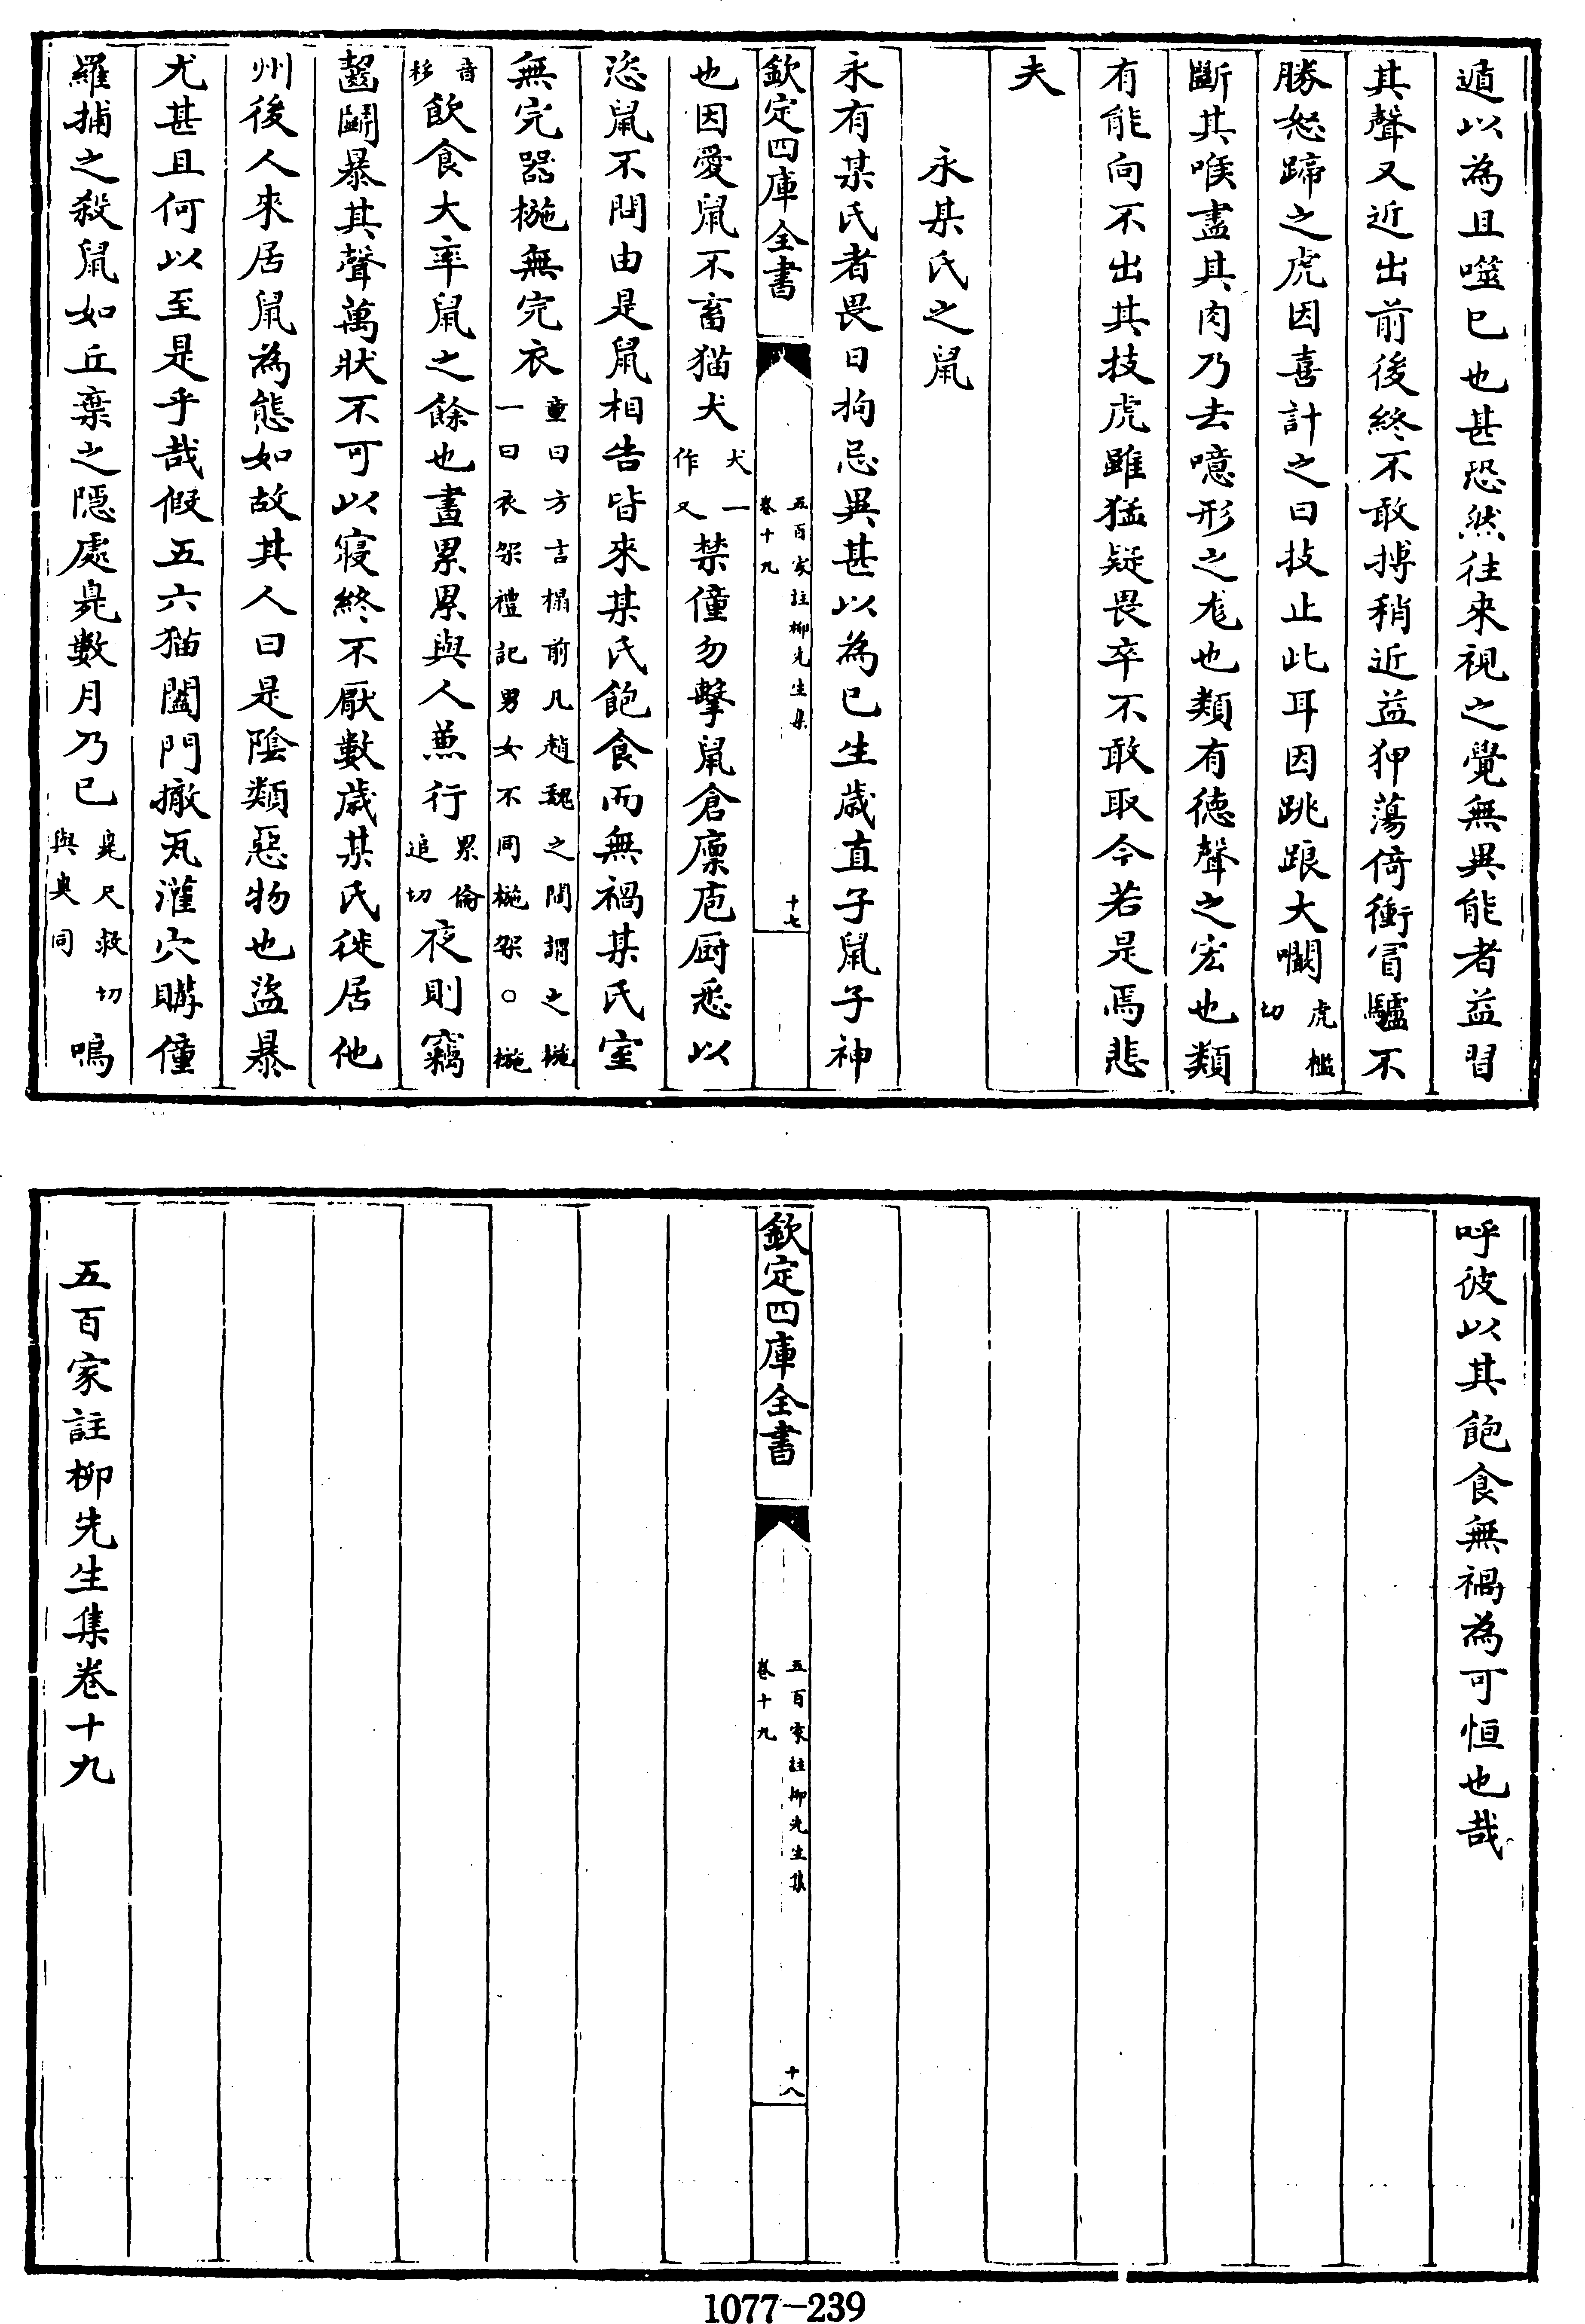 遁以為且噬已也甚恐然往來視之覺無異能者益習
其聲又近出前後終不敢搏稍近益狎蕩倚衝冒驢不
勝怒蹄之虎因喜計之曰技止此耳因跳踉大㘚虎檻切
斷其喉盡其肉乃去噫形之尨也類有徳聲之宏也類
有能向不出其技虎雖猛疑畏卒不敢取今若是焉悲
夫
永某氏之鼠
永有某氏者畏日拘忌異甚以為已生歳直子鼠子神
欽定四庫全書
五百家註柳先生集
卷十九
十七
也因愛鼠不畜猫犬犬一作又禁僮勿擊鼠倉廪庖厨悉以
恣鼠不問由是鼠相告皆來某氏飽食而無禍某氏室
無完器椸無完衣童曰方言榻前几趙魏之間謂之椸一曰衣架禮記男女不同椸架○椸
音栘飲食大率鼠之餘也晝累累與人兼行累倫追切夜則竊
齧鬭暴其聲萬狀不可以寢終不厭數歳某氏徙居他
州後人來居鼠為態如故其人曰是陰類惡物也盜暴
尤甚且何以至是乎哉假五六猫闔門撤瓦灌穴購僮
羅捕之殺鼠如丘棄之隠處臰數月乃已臰尺救切與臭同嗚
呼彼以其飽食無禍為可恒也哉
欽定四庫全書
五百家註柳先生集
卷十九
十八
五百家註柳先生集卷十九
1077-239